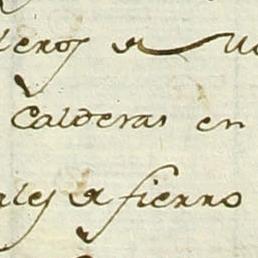 leros de
Calderas en
ales de fierro